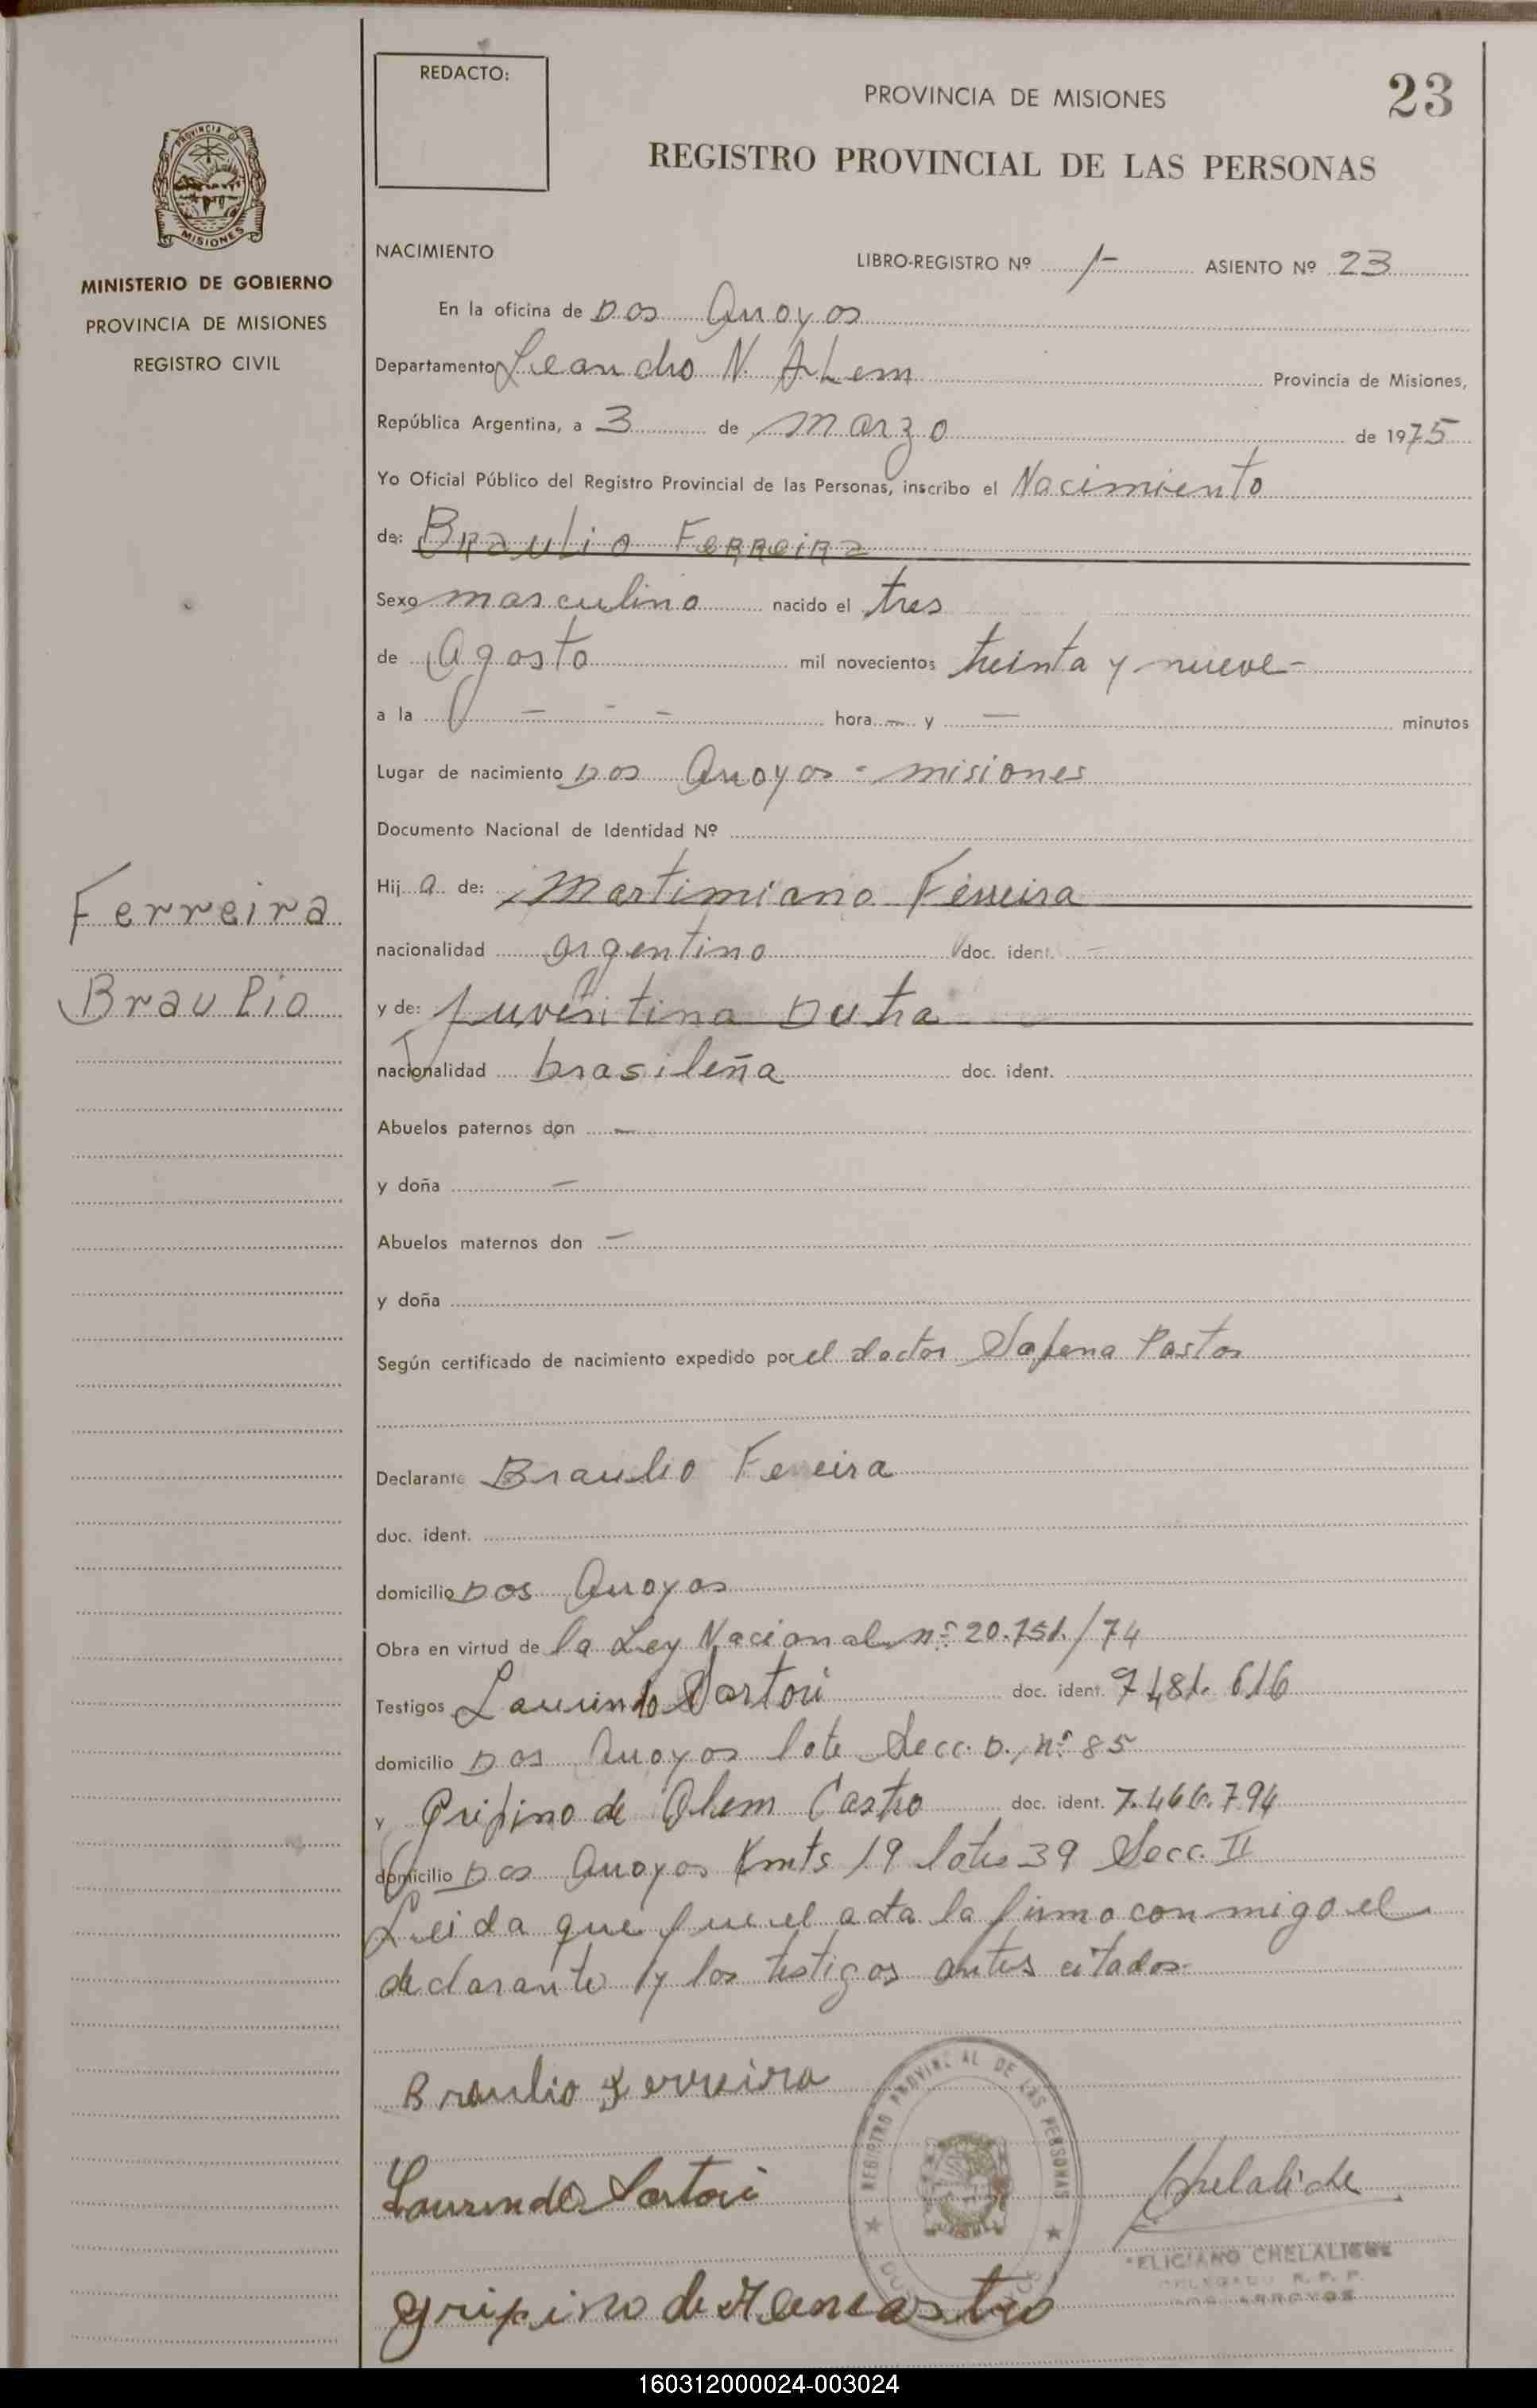 REDACTO:
PROVINCIA DE MISIONES
23
REGISTRO PROVINCIAL DE LAS PERSONAS
PROVINCIA DE
MISIONES
MINISTERIO DE GOBIERNO
PROVINCIA DE MISIONES
REGISTRO CIVIL
NACIMIENTO
LIBRO-REGISTRO Nº 1- ASIENTO Nº 23
En la oficina de Dos Arroyos
Departamento Leandro N. ALem Provincia de Misiones,
República Argentina, a 3 de marzo de 1975
Yo Oficial Público del Registro Provincial de las Personas, inscribo el Nacimiento
de: BRauLio FeRReiRa
Sexo masculino nacido el tres
de Agosto mil novecientos treinta y nueve-
a la - - - hora - y - minutos
Lugar de nacimiento Dos Arroyos - misiones
Documento Nacional de Identidad Nº
Hij a de: Martimiano Ferreira
nacionalidad argentino doc. ident. -
Ferreira
Braulio
y de: Juventina Dutra
nacionalidad brasileña doc. ident.
Abuelos paternos don -
y doña -
Abuelos maternos don -
y doña
Según certificado de nacimiento expedido por el doctor Sapena Pastor
Declarante Braulio Ferreira
doc. ident.
domicilio Dos Arroyos
Obra en virtud de la Ley Nacional nº 20.751/74
Testigos Laurindo Sartori doc. ident. 7.481.616
domicilio Dos Arroyos lote Secc. D. nº 85
y Gripino de Alem Castro doc. ident. 7.466.794
domicilio Dos Arroyos Kmts 19 lote 39 Secc. II
Leida que fue el acta la firmo con migo el
declarante y los testigos antes citados.
Braulio Ferreira
Laurindo Sartori
gripino de
REGISTRO PROVINCIAL DE LAS PERSONAS
Chelaliche
FELICIANO CHELALICHE
DELEGADO R. P. P.
DOS ARROYOS
160312000024-003024